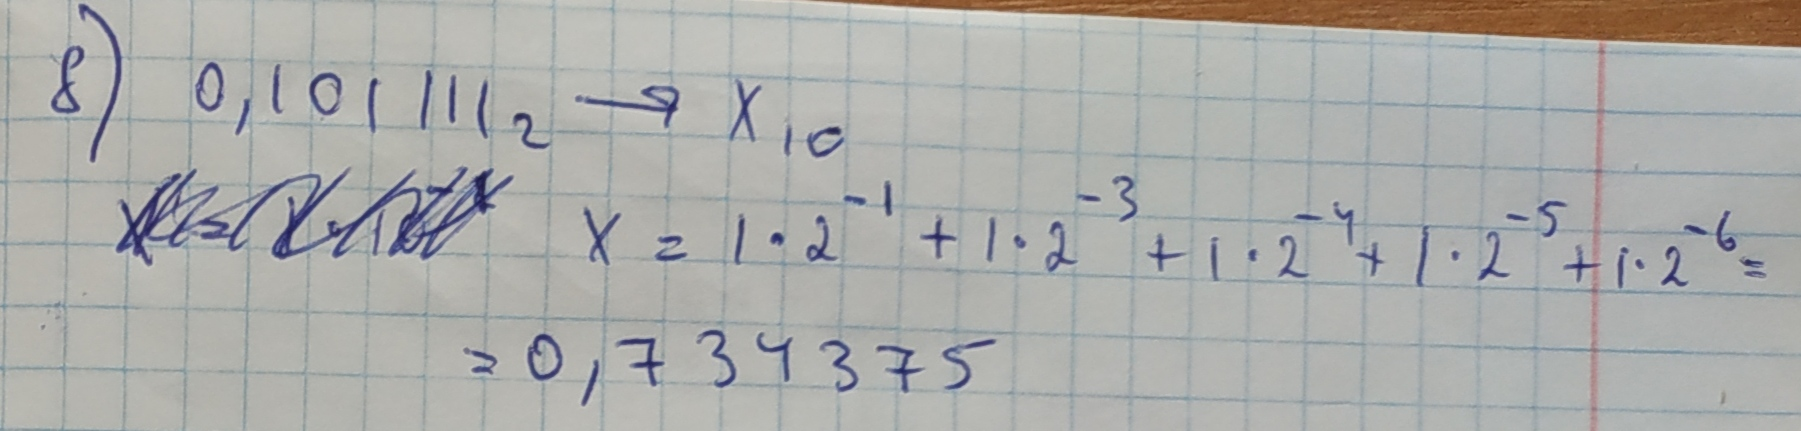 8) 0,101111₂ → X₁₀
X = 1·2⁻¹ + 1·2⁻³ + 1·2⁻⁴ + 1·2⁻⁵ + 1·2⁻⁶ =
= 0,734375